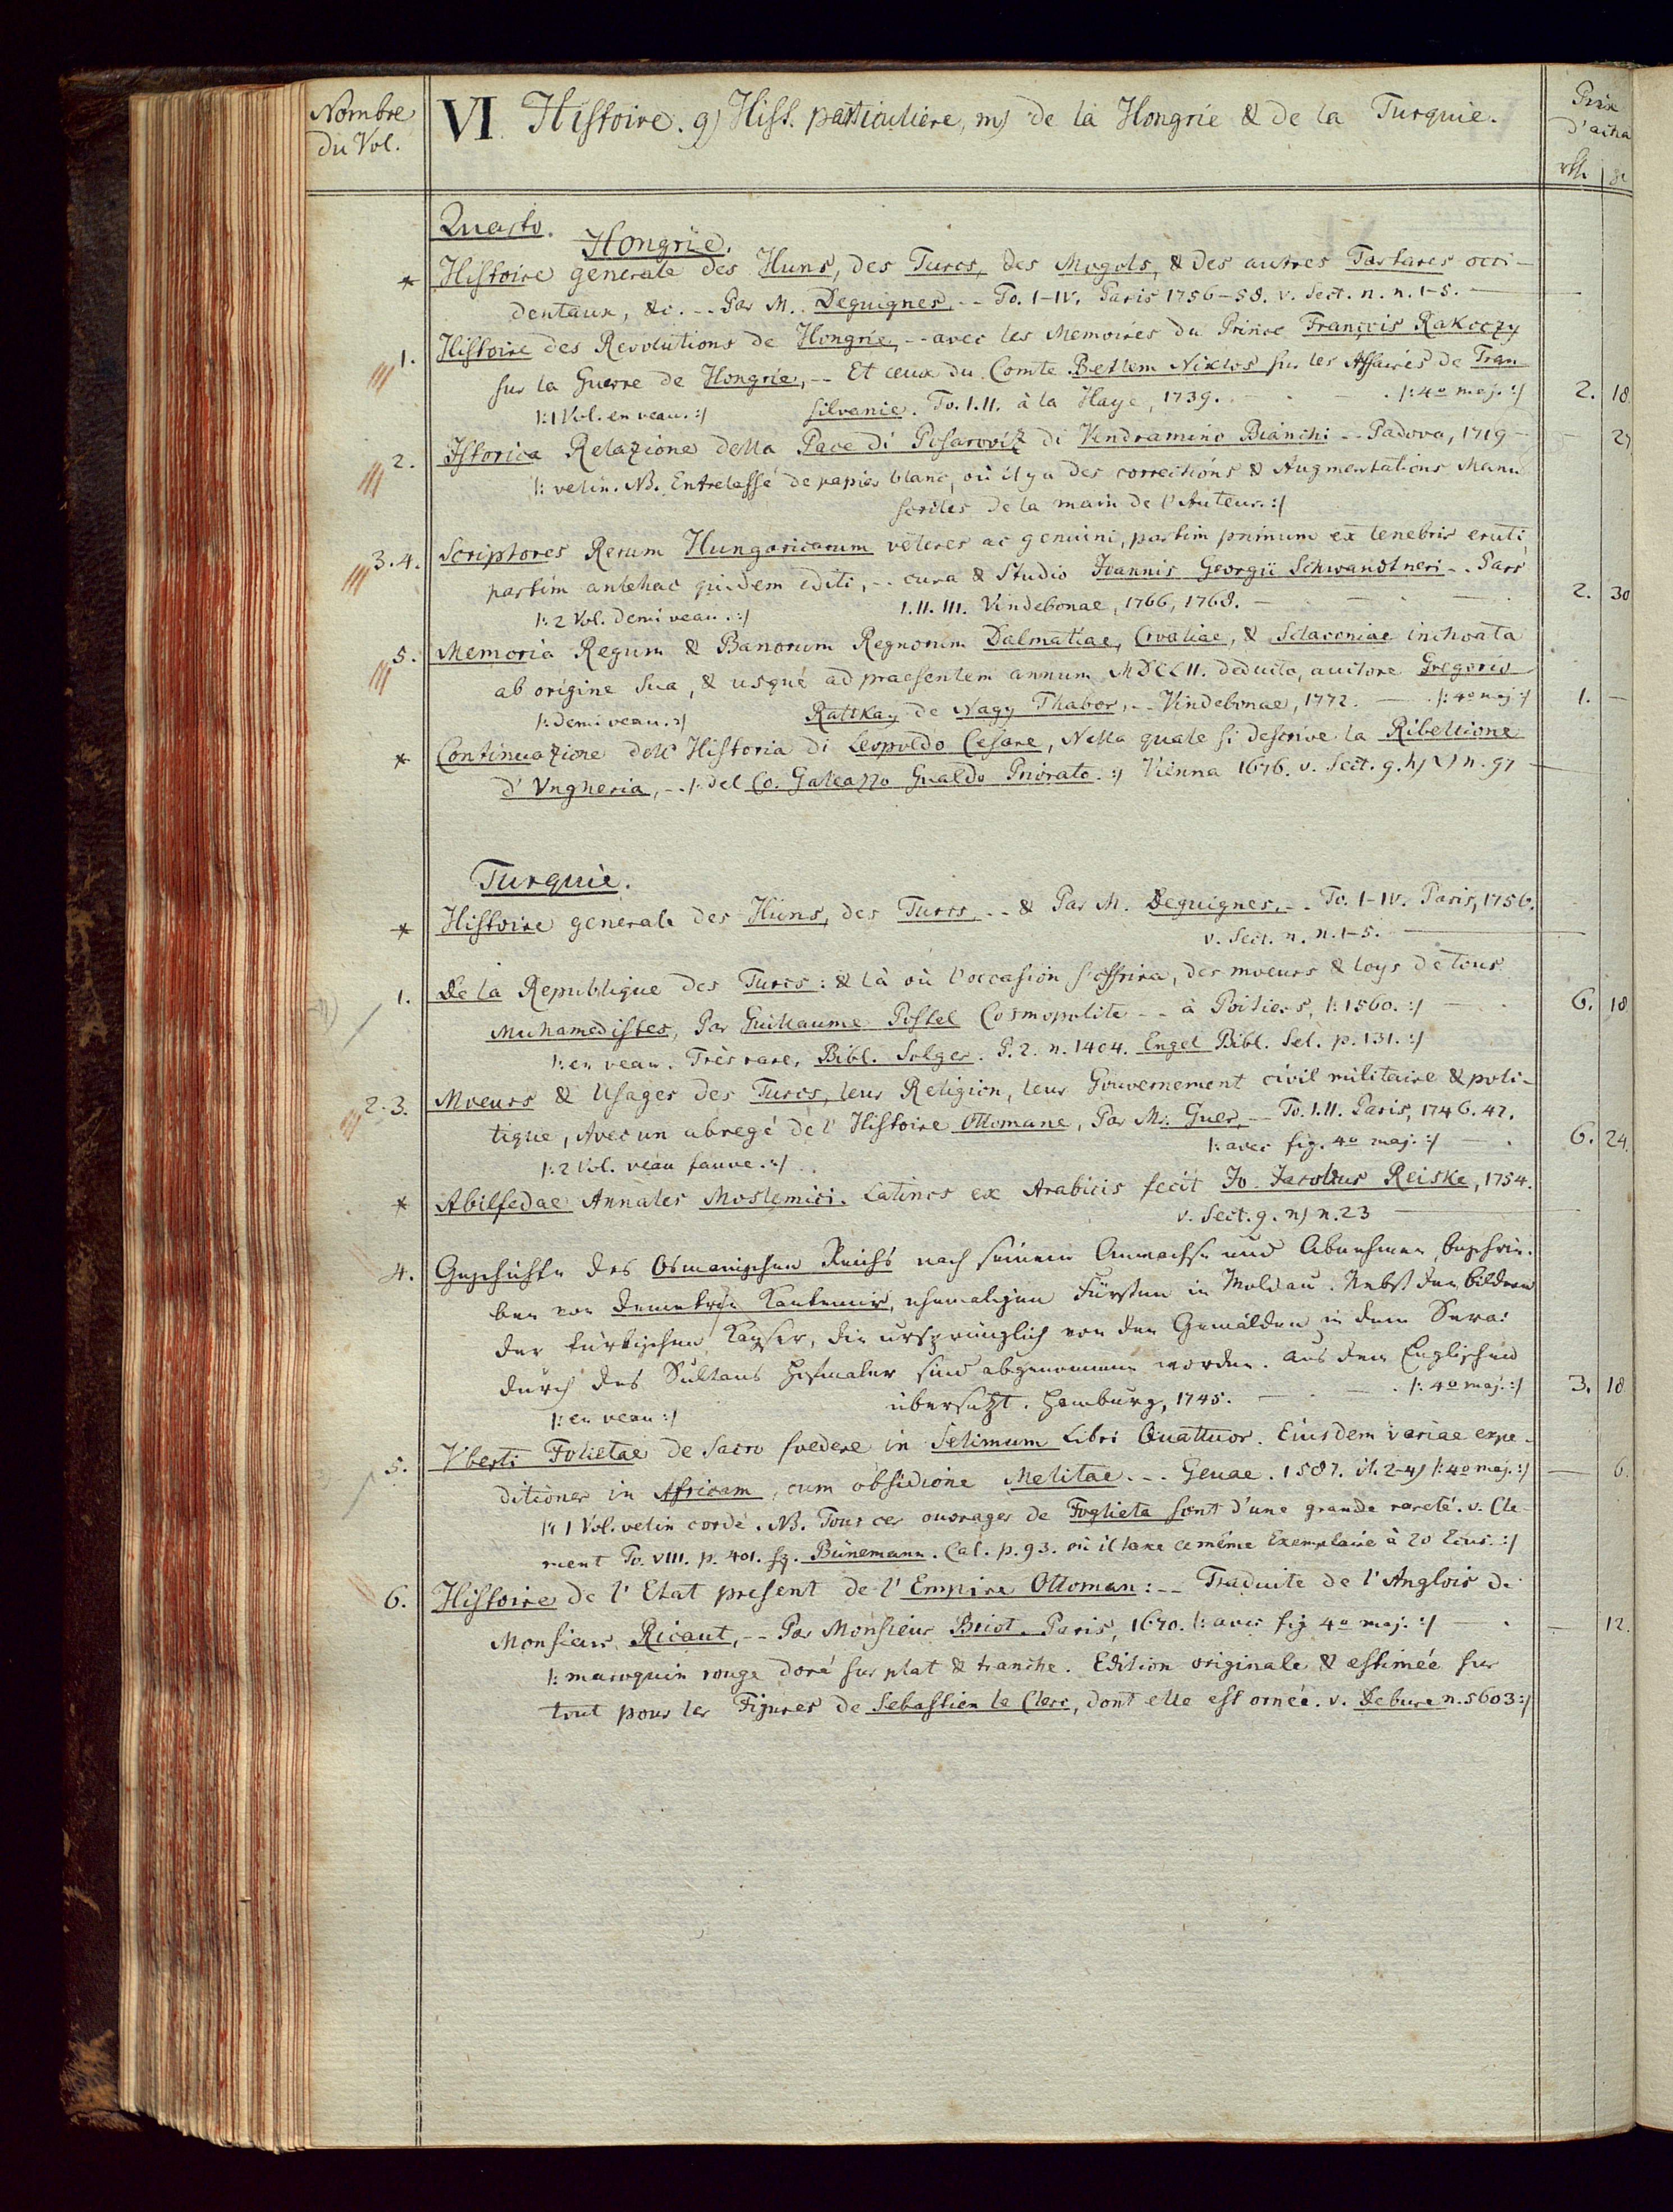 Nombre
du Vol.
VI. Histoire. g) Hist. particuliere, m) de la Hongrie & de la Turquie.
Prix
d'acha
rth.
Quarto.
Hongrie.
* Histoire generale des Huns, des Turcs, des Mogols, & des autres Tartares occi-
dentaux, &c. -- Par M. Deguignes. -- To. I-IV. Paris 1756-58. v. Sect. n. n. 1-5. —
1. Histoire des Revolutions de Hongrie, -- avec les Memoires du Prince François Rakoczy
sur la Guerre de Hongrie, -- Et ceux du Comte Betlem Niklos sur les Affaires de Tran
|: 1 Vol. en veau. :| silvanie. To. I. II. à la Haye, 1739. |: 4o maj. :| 2. 18.
2. Istorica Relazione della Pace di Posaroviz di Vendramino Bianchi -- Padova, 1719 —
|: velin. NB. Entrelassé de papier blanc, où il y a des corrections & Augmentations Manu
scrites de la main de l'Auteur. :|
3. 4. Scriptores Rerum Hungaricarum veteres ac genuini, partim primum ex tenebris eruti
partim antehac quidem editi, -- cura & Studio Ioannis Georgii Schwandtneri -- Pars
|: 2 Vol. demi veau. :| I. II. III. Vindebonae, 1766, 1768. — 2. 30
5. Memoria Regum & Banorum Regnorum Dalmatiae, Croatiae, & Sclavoniae inchoata
ab origine sua, & usque ad praesentem annum MDCLII. deducta, auctore Gregorio
|: demi veau. :| Rattkay de Nagy Thabor, -- Vindebonae, 1772. — |: 4o maj :| 1. —
* Continuazione dell' Historia di Leopoldo Cesare, Nella quale si descrive la Ribellione
d'Vngheria, -- |: del Co. Galeazzo Gualdo Priorato. :| Vienna 1676. v. Sect. g. h) n. 97 —
Turquie.
* Histoire generale des Huns, des Turcs -- & Par M. Deguignes. -- To. I-IV. Paris, 1756.
v. Sect. n. n. 1-5. —
1. De la Republique des Turcs: & là où l'occasion s'offrira, des moeurs & loys de tous
Muhamedistes, Par Guillaume Postel Cosmopolite -- à Poitiers, |: 1560. :| — 6. 18
|: en veau. Très rare, Bibl. Solger. P. 2. n. 1404. Engel Bibl. Sel. p. 131. :|
2. 3. Moeurs & Usages des Turcs, leur Religion, leur Gouvernement civil militaire & poli-
tique, Avec un abregé de l'Histoire Ottomane, Par Mr. Guer, -- To. I. II. Paris, 1746. 47.
|: 2 Vol. veau fauve. :| |: avec fig. 4o maj. :| — 6. 24.
* Abilfedae Annales Moslemici. Latinos ex Arabicis fecit Jo. Jacobus Reiske, 1754.
v. Sect. g. n) n. 23 —
4. Geschichte des Osmanischen Reichs nach seinem Anwachse und Abnehmen beschrie-
ben von Demetrie Kantemir, ehemaligen Fürsten in Moldau. Nebst den Bildern
der türkischen Kayser, die ursprünglich von den Gemälden in dem Serai
durch des Sultans Hofmaler sind abgenommen worden. Aus dem Englischen
|: en veau :| übersetzt. Hamburg, 1745. — |: 4o maj. :| 3. 18
5. Vberti Folietae de Sacro foedere in Selimum Libri Quattuor. Eiusdem variae expe-
ditiones in Africam, cum obsidione Melitae. -- Genae. 1587. it. 2-4) |: 4o maj. :| — 6.
|: 1 Vol. velin cordé. NB. Tous ces ouvrages de Foglieta sont d'une grande rareté. v. Cle-
ment To. VIII. p. 401. sq. Bünemann. Cal. p. 93. où il taxe ce même Exemplaire à 20 :|
6. Histoire de l'Etat present de l'Empire Ottoman: -- Traduite de l'Anglois de
Monsieur Ricaut, -- Par Monsieur Briot. Paris, 1670. |: avec fig 4o maj. :| — 12.
|: maroquin rouge doré sur plat & tranche. Edition originale & estimée sur
tout pour les Figures de Sebastien le Clerc, dont elle est ornée. v. Debure n. 5603 :|